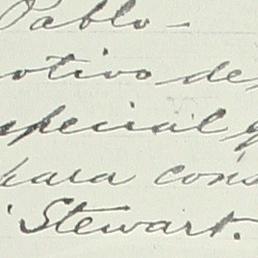 Pablo -
otivo de
special q
para cons
Stewart.